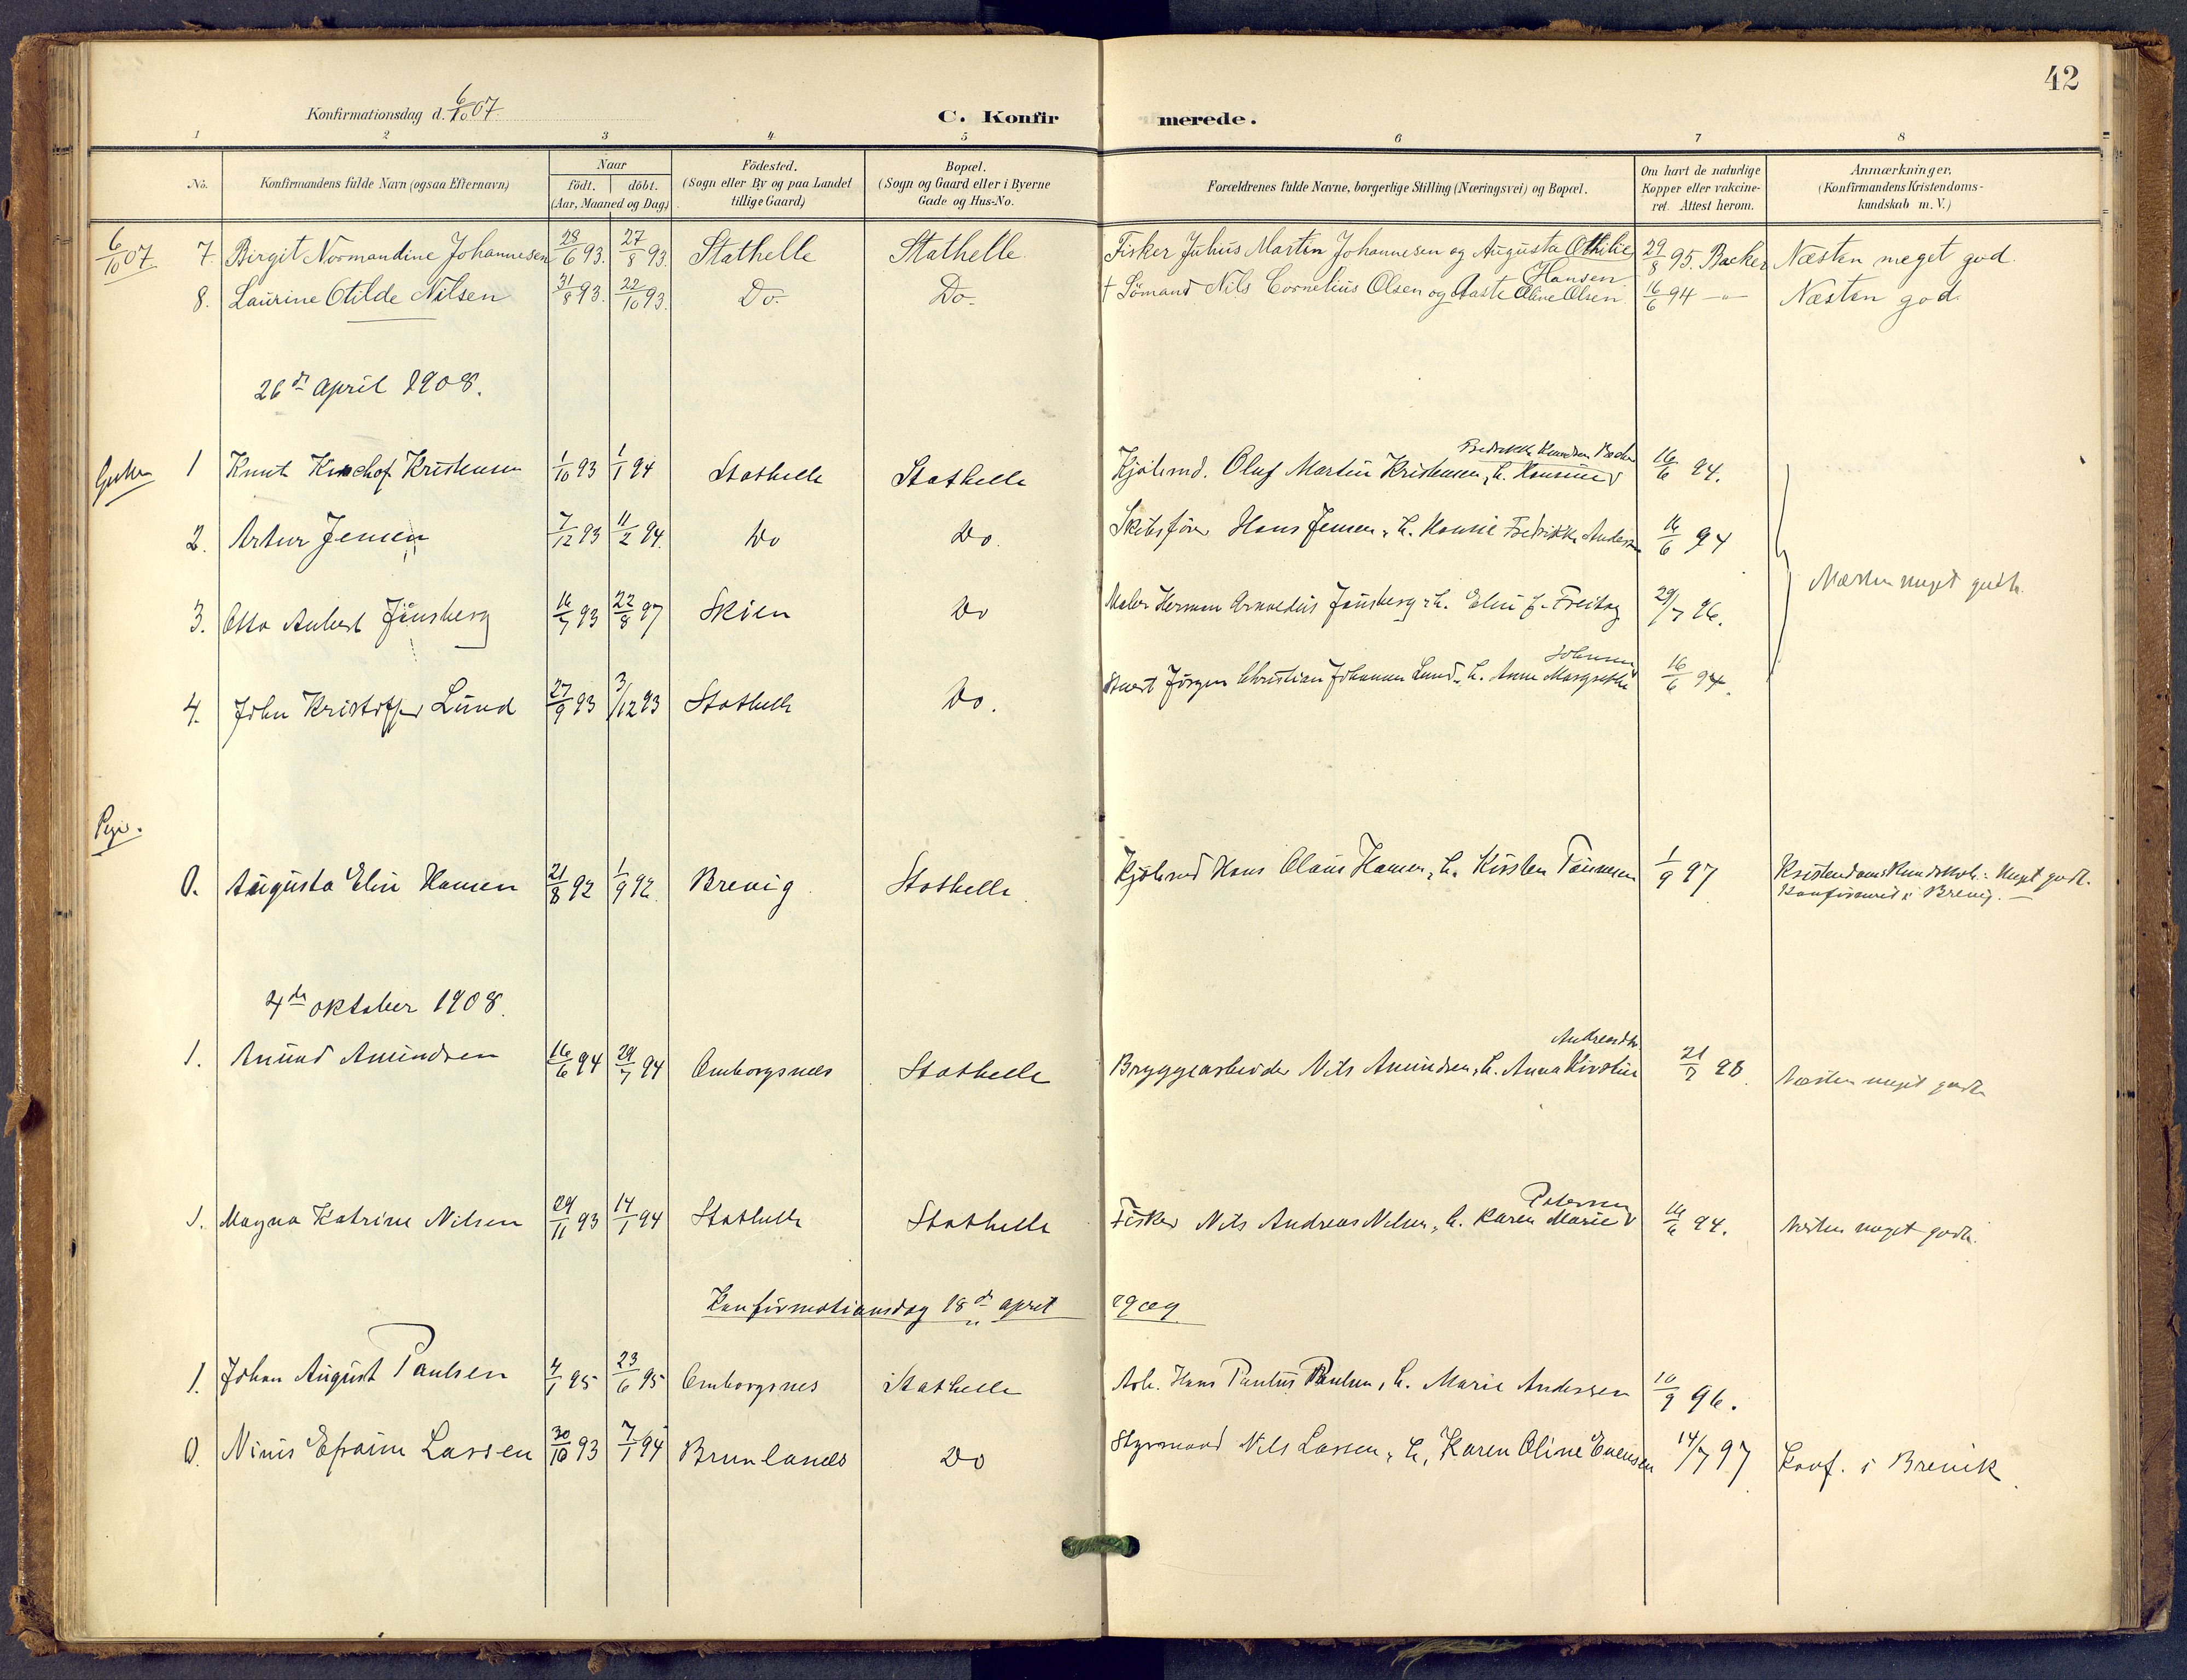 42
Konfirmationsdag d. 6/10 07.
C. Konfirmerede.
1 2 3 4 5 6 7 8
No.
Konfirmandens fulde Navn (ogsaa Efternavn)
Naar
födt. döbt.
(Aar, Maaned og Dag)
Födested.
(Sogn eller By og paa Landet
tillige Gaard)
Bopæl.
(Sogn og Gaard eller i Byerne
Gade og Hus-No.
Forældrenes fulde Navne, borgerlige Stilling (Næringsvei) og Bopæl.
Om havt de naturlige
Kopper eller vakcine-
ret. Attest herom.
Anmærkninger.
(Konfirmandens Kristendoms-
kundskab m. V.)
6/10 07. 7. Birgit Normandine Johannesen 28/6 93. 27/8 93. Stathelle Stathelle Fisker Julius Martin Johannesen og Augusta Othilie Hansen 29/8 95. Backer Næsten meget god.
8. Laurine Otilde Nilsen 31/8 93. 22/10 93. Do. Do. † Sömand Nils Cornelius Olsen og Aaste Oline Olsen 16/6 94 -"- Næsten god.
26de april 1908.
Gutter
1 Knut Kristensen 1/10 93 1/1 94 Stathelle Stathelle Oluf Martin Kristensen, h. 16/6 94.
2. Artur Jensen 7/12 93 11/2 94. Do Do. Skibsförer Hans Jensen, h. Fredrikke Andersen 16/6 94
3. Otto Aubert Jönsberg 16/7 93 22/8 97 Skien Do Maler Herman Arnoldus Jönsberg, h. Elin J. Freitag 29/7 96.
Næsten meget godt.
4. John Kristoffer Lund 27/9 93 3/12 93 Stathelle Do. Jörgen Christian Johannes Lund, h. Anne Margrethe Johnsen 16/6 94.
Piger.
0. Augusta Elin Hansen 21/8 92 1/9 92. Brevig. Stathelle. Hans Olaus Hansen, h. Kirsten 1/9 97 Kristendomskundskab: Meget godt.
Konfirmeret i Brevig.
4de oktober 1908.
1. Amund Amundsen 16/6 94 29/7 94 Omborgsnes Stathelle Bryggearbeider Nils Amundsen, h. Anna Kirstine Andreasdtr. 21/7 98 Næsten meget godt
1. Magna Katrine Nilsen 29/11 93 14/1 94 Stathelle Stathelle Fisker Nils Andreas Nilsen, h. Karen Marie Petersen 16/6 94. Næsten meget godt.
Konfirmationsdag 18de april 1909
1. Johan August Paulsen 4/1 95 23/6 95 Omborgsnes Stathelle Arb. Hans Paulus Paulsen, h. Marie Andersen 10/9 96.
0. Nius Efraim Larsen 30/10 93 7/1 94 Brunlanes Do Styrmand Nils Larsen, h. Karen Oline Evensen 14/7 97 Konf. i Brevik.